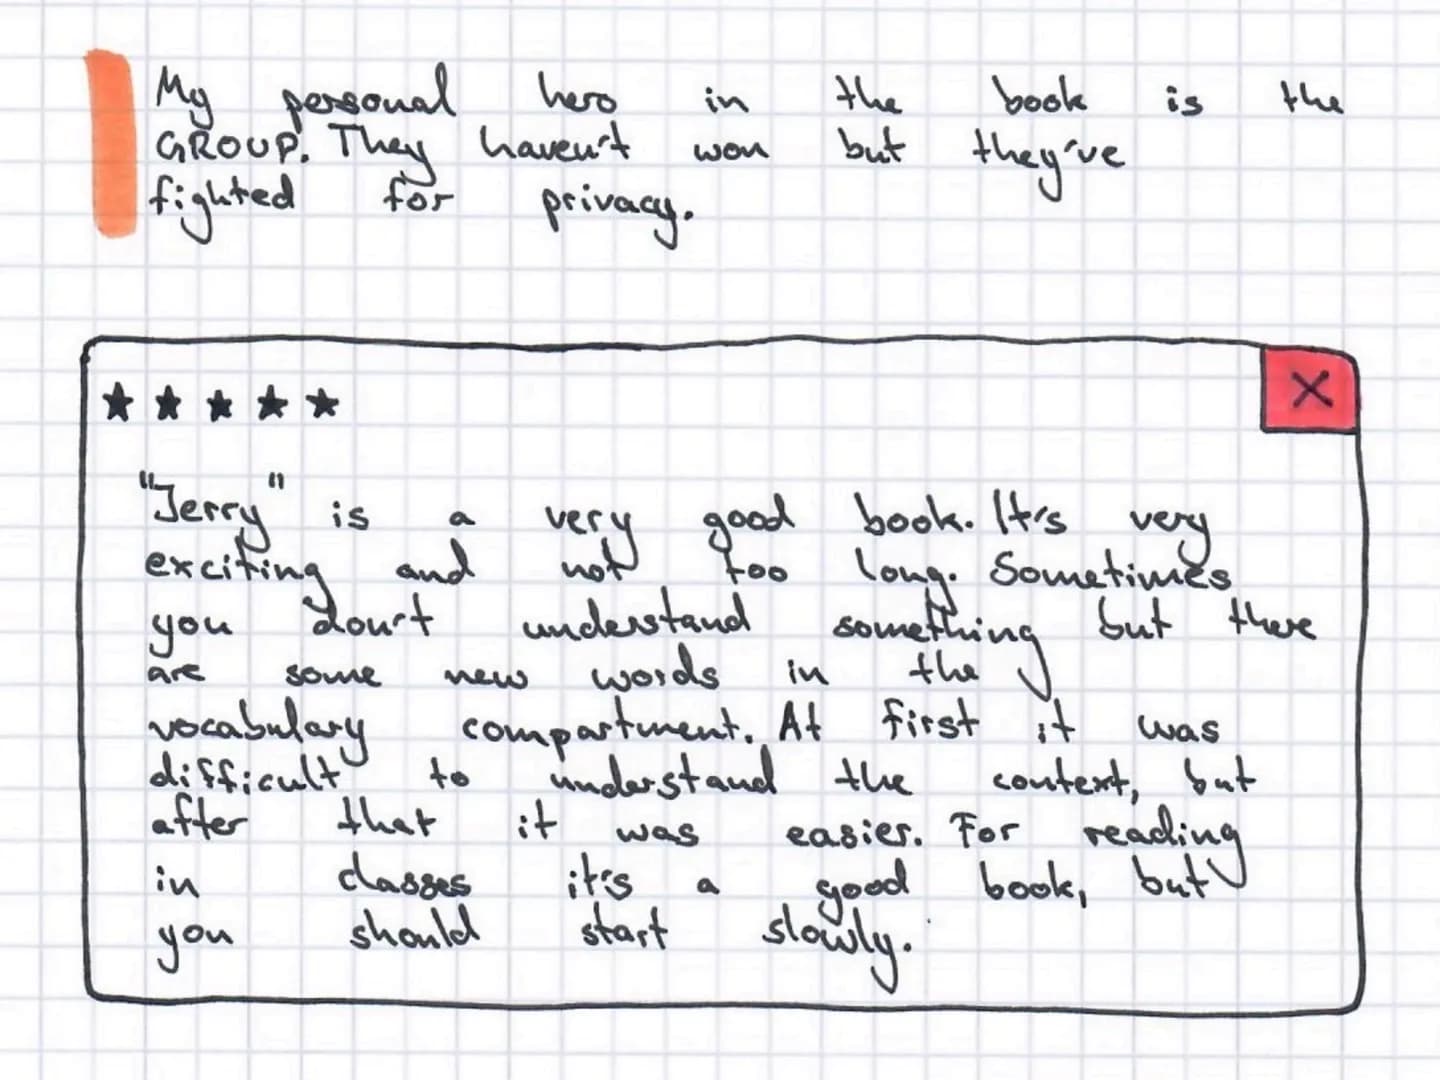 My personal hero in the book is the
GROUP. They haven't won but they've
fighted for privacy.
★★★★★
X
"Jerry" is a very good book. It's very
exciting and not too long. Sometimes
you don't understand something but there
are some new words in the
vocabulary compartment. At first it was
difficult to understand the context, but
after that it was easier. For reading
in classes it's a good book, but
you should start slowly.